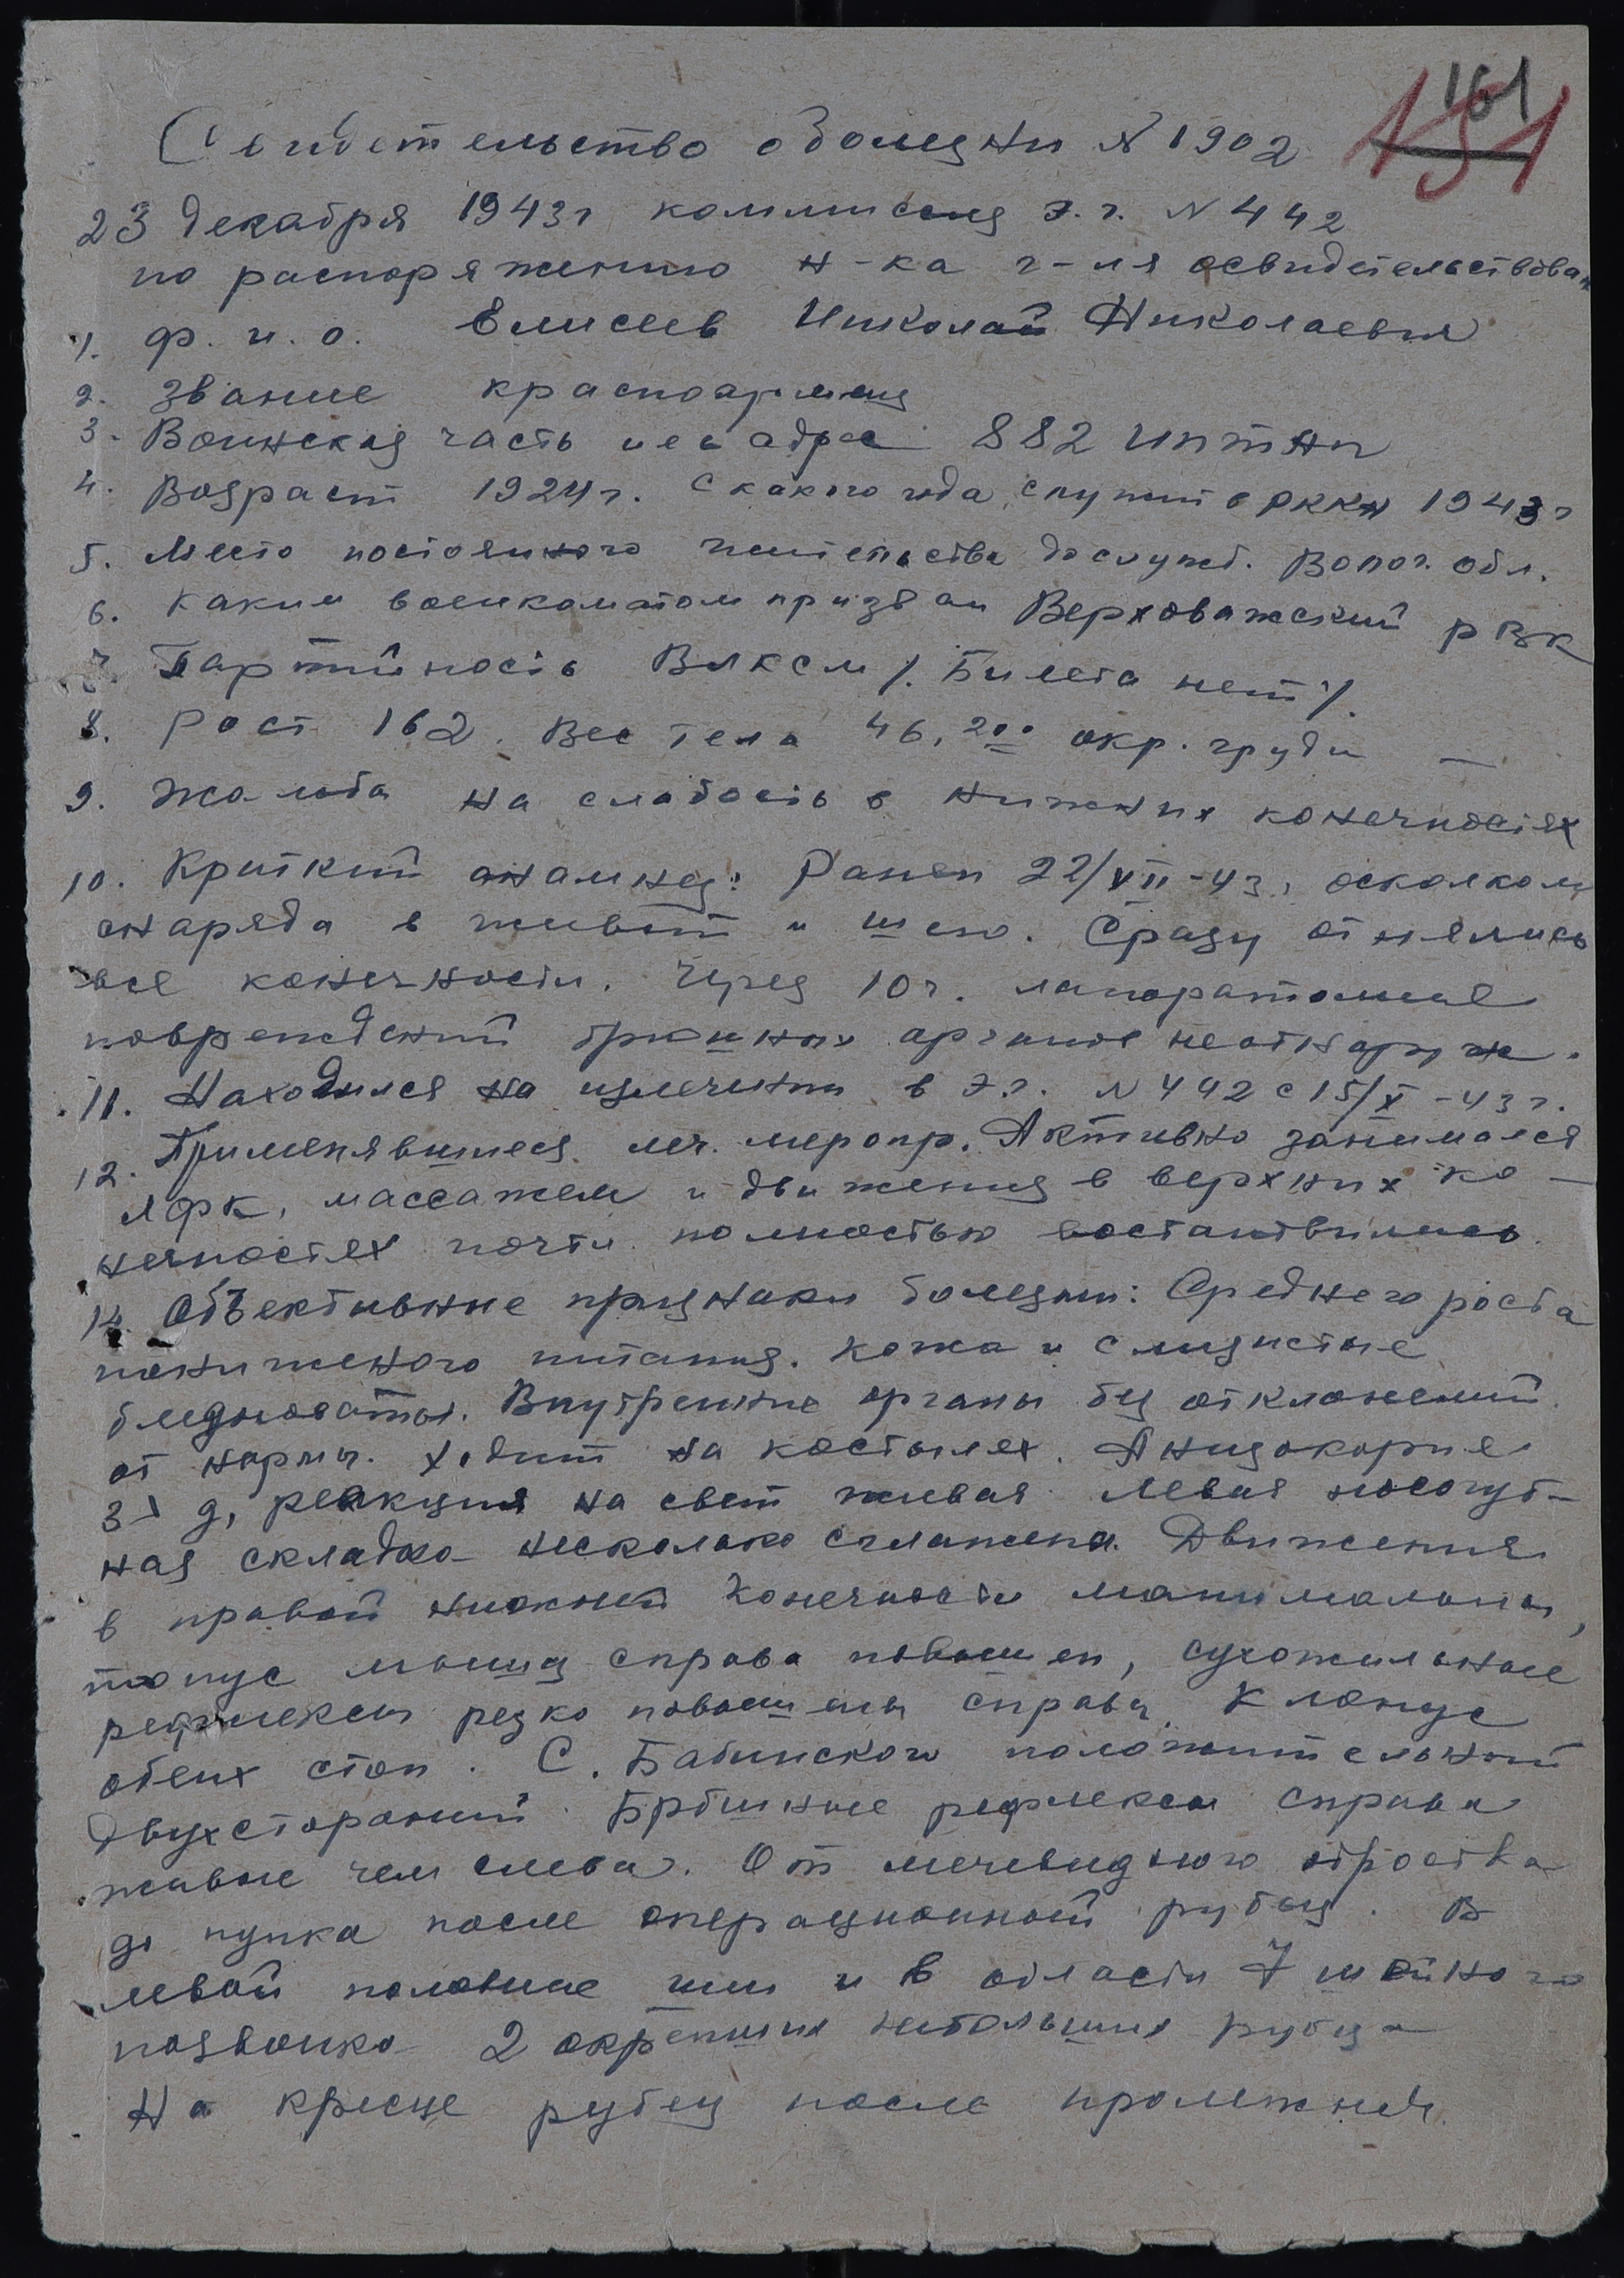 161
151
Свидетельство о болезни № 1902
23 декабря 1943г комиссия э.г. № 442
по распоряжению н-ка г-ля освидетельствован
1. ф. и. о. Елисеев Николай Николаевич
2. Звание красноармеец
3. Воинская часть и ея адрес 882 ИПТАП
4. Возраст 1924г. С какого года служит в РККА 1943г
5. Место постоянного жительства до служб. Волог. обл.
6. Каким военкоматом призван Верховажский РВК
7. Партийность ВЛКСМ /. Билета нет /.
8. Рост 162. Вес тела 46,200 окр. груди —
9. Жалоба на слабость в нижних конечностях
10. Краткий анамнез: Ранен 22/VII-43, осколком
снаряда в живот и шею. Сразу отнялись
все конечности. Через 10ч. лапоратомия
повреждений брюшных органов не обнаруж.
11. Находился на излечении в э.г. № 442 с 15/X-43г.
12. Применявшиеся леч. меропр. Активно занимался
ЛФК, массажем и движения в верхних ко-
нечностях почти полностью востановились.
14. Объективные признаки болезни: Среднего роста
пониженого питания. Кожа и слизистые
бледноваты. Внутренние органы без отклонений
от нормы. Ходит на костылях. Анизокория
реакция на свет живая левая носогуб-
ная складка несколько сглажена. Движения
в правой нижней конечности минимальны,
тонус мышц справа повышен, сухожильные
рефлексы резко повышены справа. Клонус
обеих стоп. С. Бабинского положительный
двухсторонний. Брюшные рефлексы справа
живые чем слева. От мечевидного отростка
до пупка после операционный рубец. В
левой половине шеи и в области 7 шейного
позвонка 2 окрепших небольших рубца
На кресце рубец после пролежней.